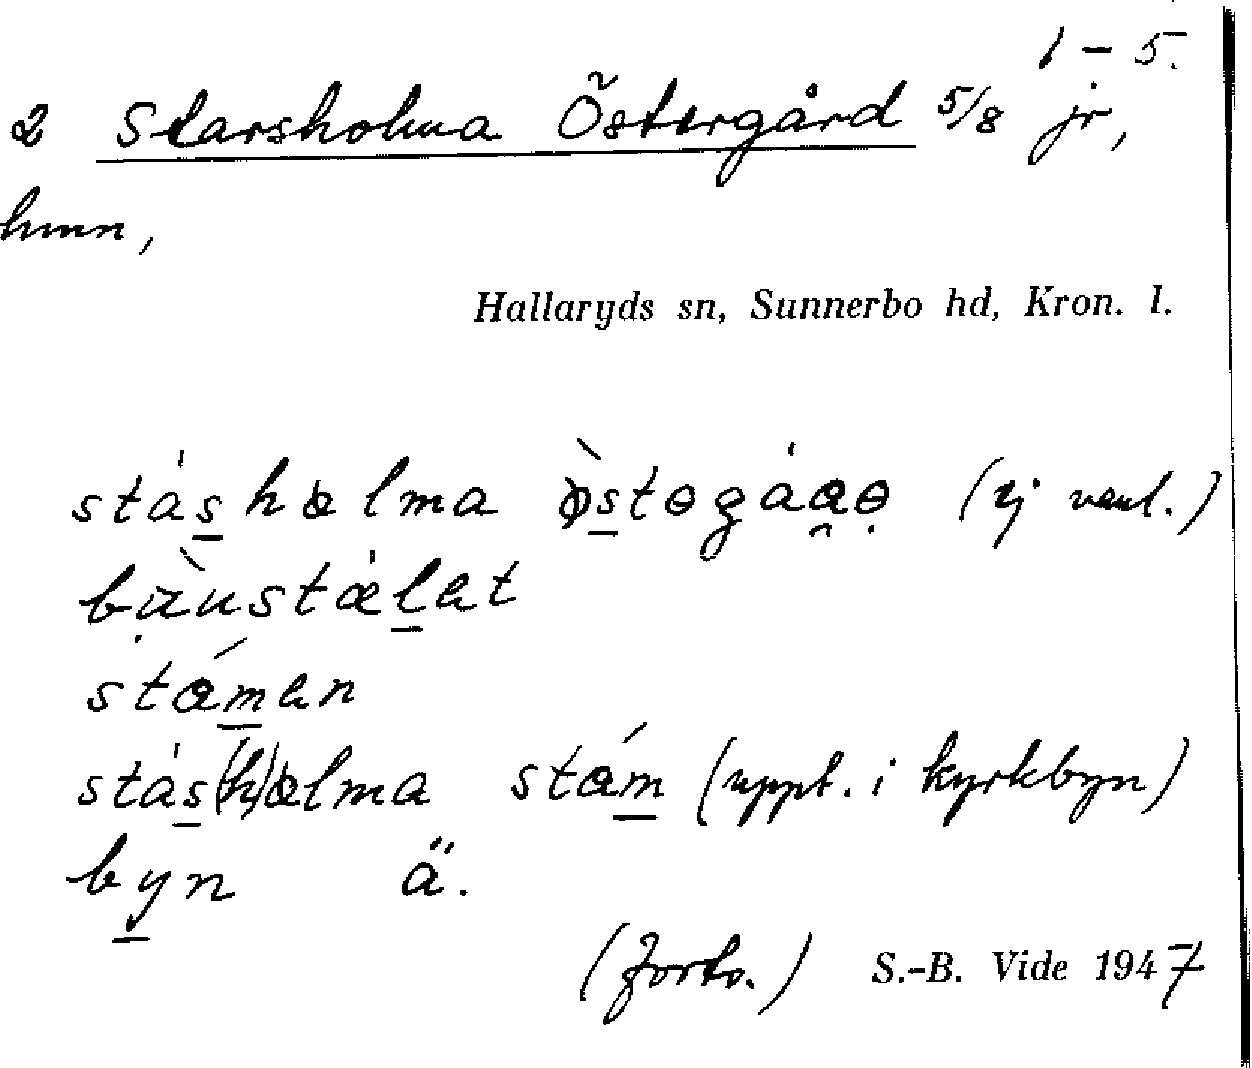 1-5.
2 Starsholma Östergård 5/8 jr,
hmn,
Hallaryds sn, Sunnerbo hd, Kron. l.
stás hɵlma ø̀stɵgáaɵ (ej vanl.)
bàustálat
stáman
stás(h)ɵlma stám (uppt. i kyrkbyn)
byn ä.
(forts.) S.-B. Vide 1947